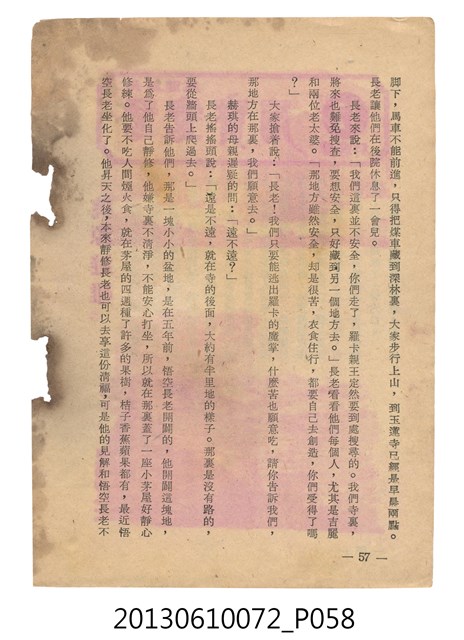 脚下，馬車不能前進，只得把煤車藏到深林裏，大家步行上山，到玉蓮寺已經是早晨兩點。
長老讓他們在後院休息了一會兒。
長老來說：「我們這裏並不安全，你們走了，羅卡親王定然要到處搜尋的。我們寺裏，
將來也難免搜查，要想安全，只好藏到另一個地方去。」長老看看他們每個人，尤其是吉麗
和兩位老太婆。「那地方雖然安全，却是很苦，衣食住行，都要自己去創造，你們受得了嗎
？」
大家搶着說：「長老！我們只要能逃出羅卡的魔掌，什麼苦也願意吃，請你告訴我們，
那地方在那裏，我們願意去。」
赫琪的母親遲疑的問：「遠不遠？」
長老搖搖頭說：「遠是不遠，就在寺的後面，大約有半里地的樣子。那裏是沒有路的，
要從牆頭上爬過去。」
長老告訴他們，那是一塊小小的盆地，是在五年前，悟空長老開闢的，他開闢這塊地，
是爲了他自己靜修，他嫌寺裏不清淨，不能安心打坐，所以就在那裏蓋了一座小茅屋好靜心
修練。他要不吃人間煙火食，就在茅屋的四週種了許多的果樹，桔子香蕉蘋果都有，最近悟
空長老坐化了。他昇天之後，本來靜修長老也可以去享這份清福，可是他的見解和悟空長老不
— 57 —
20130610072_P058